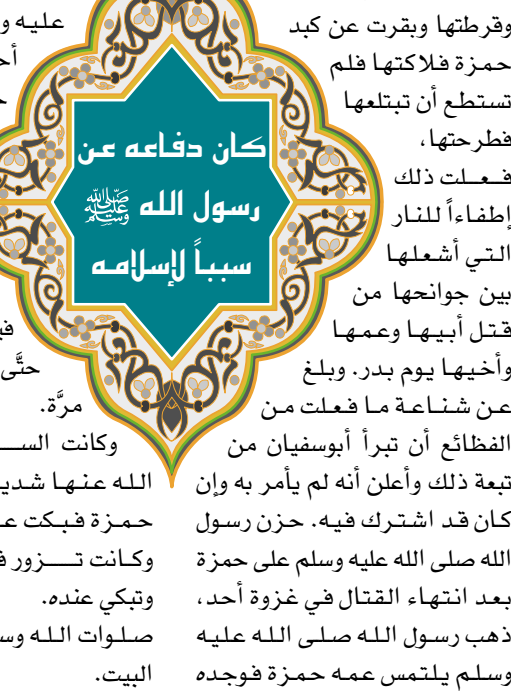 وقرطتها وبقرت عن كبد
حمزة فلاكتها فلم
تستطع أن تبتلعها
فطرحتها،
فعلت ذلك
إطفاءاً للنار
التي أشعلها
بين جوانحها من
قتل أبيها وعمها
وأخيها يوم بدر. وبلغ
عن شناعة ما فعلت من
الفظائع أن تبرأ أبوسفيان من
تبعة ذلك وأعلن أنه لم يأمر به وإن
كان قد اشترك فيه. حزن رسول
الله صلى الله عليه وسلم على حمزة
بعد انتهاء القتال في غزوة أحد،
ذهب رسول الله صلى الله عليه
وسلم يلتمس عمه حمزة فوجده
كان دفاعه عن
رسول الله ﷺ
سبباً لإسلامه
عليه
حتَّى
مرَّة.
وكانت
الله عنها
حمزة فبكت
وكانت تزور
وتبكي عنده.
صلوات الله
البيت.